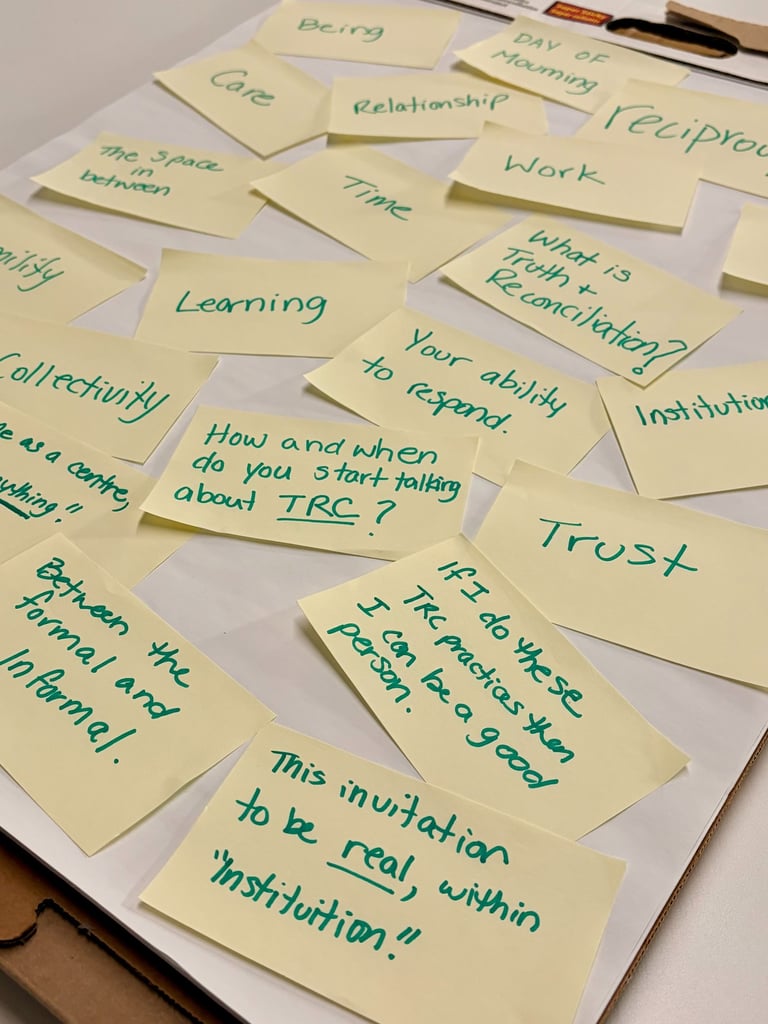 Being
DAY OF
Mourning
Care
Relationship
The Space
in
between
Time
Work
Learning
What is
Truth +
Reconciliation?
Collectivity
Your ability
to respond.
as a centre,
How and when
do you start talking
about TRC?
Trust
Between the
formal and
Informal.
If I do these
TRC practices then
I can be a good
person.
This invitation
to be real, within
"Instituition."